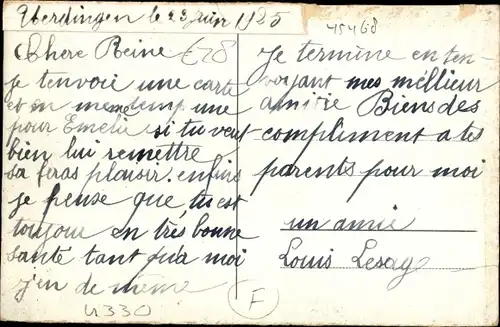 Uerdingen le 23 Juin 1925
45468
Chere Reine
€28
Je tenvoi une carte
et en memetemp une
pour Emelie si tu veut
bien lui remettre
sa feras plaisir. enfins
je pense que, tu est
toujour en très bonne
santé tant qu'a moi
j'en de même
Je termine en ten-
voyant mes meillieur
amitie Biens des
compliment a tes
parents pour moi
un amie
Louis Lesag
4330
F